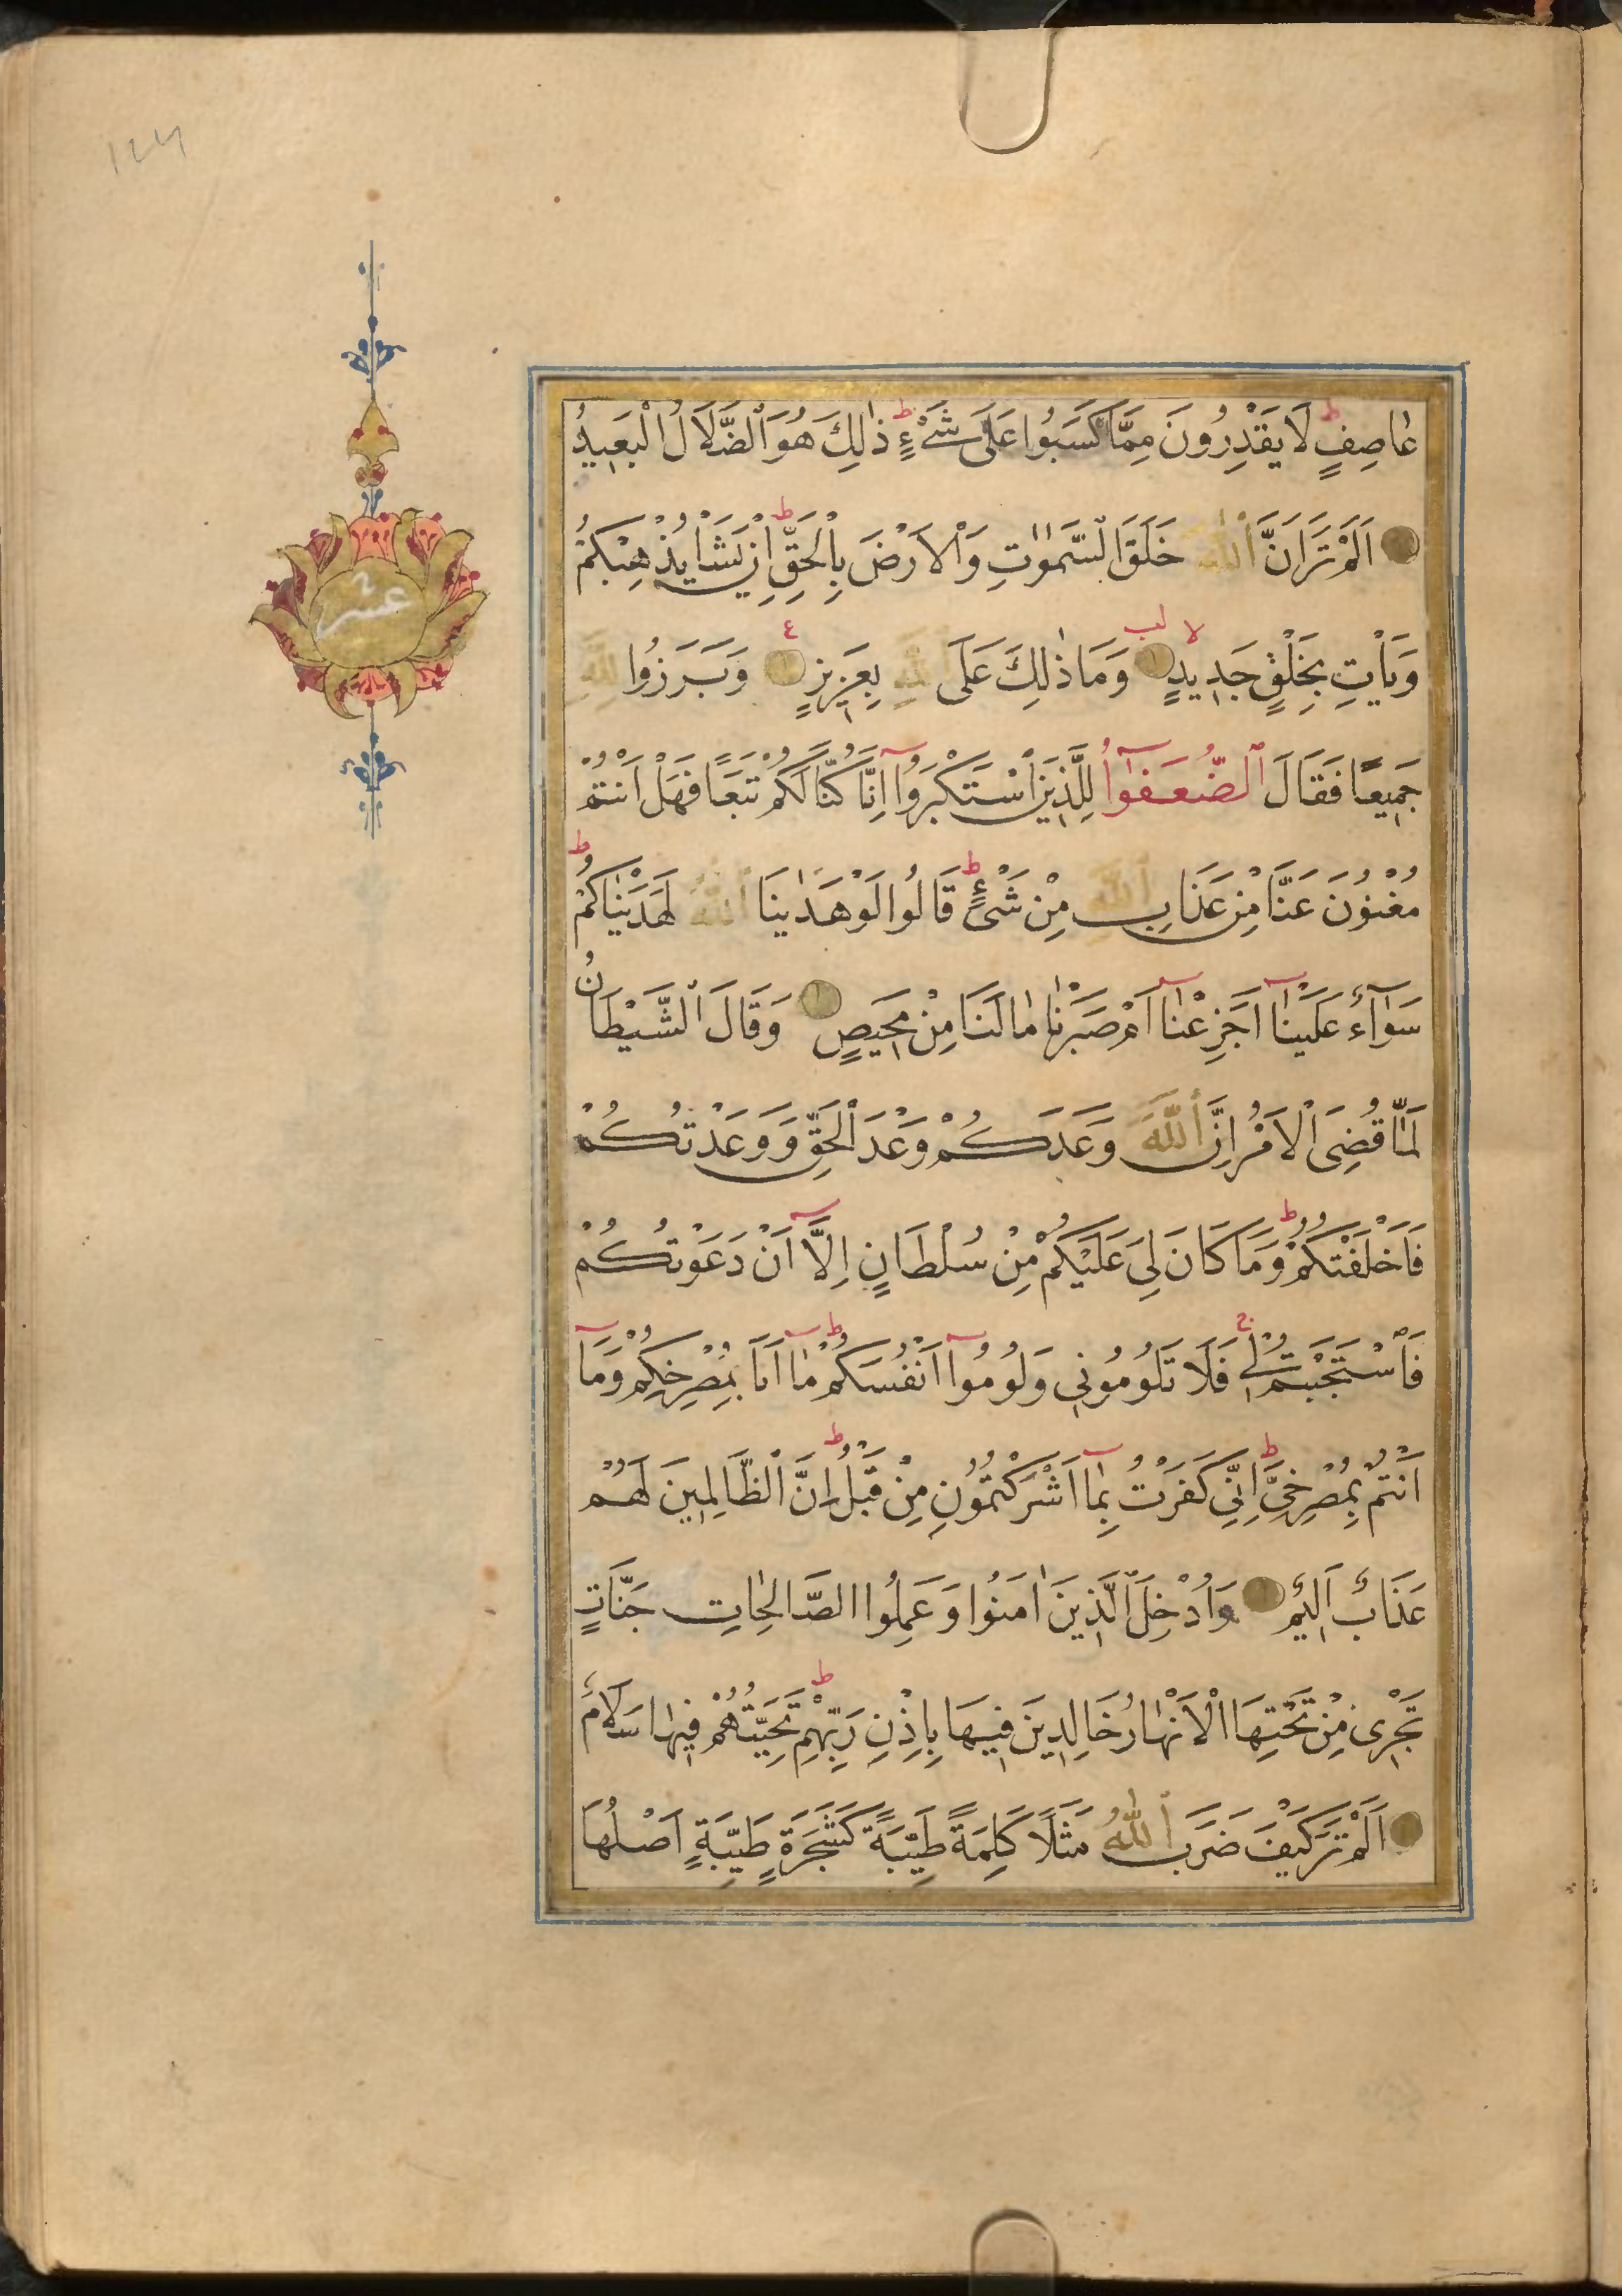 عاصِفٍ لَا يَقْدِرُونَ مِمَّا كَسَبُوا عَلَى شَىْءٍ ط ذٰلِكَ هُوَ الضَّلَالُ الْبَعِيدُ
اَلَمْ تَرَ اَنَّ اللّٰهَ خَلَقَ السَّمٰوٰتِ وَالْاَرْضَ بِالْحَقِّ ط اِنْ يَشَاْ يُذْهِبْكُمْ
وَيَاْتِ بِخَلْقٍ جَدِيدٍ لا لب وَمَا ذٰلِكَ عَلَى اللّٰهِ بِعَزِيزٍ ع وَبَرَزُوا لِلّٰهِ
جَمِيعًا فَقَالَ الضُّعَفٰٓؤُا لِلَّذِينَ اسْتَكْبَرُوٓا اِنَّا كُنَّا لَكُمْ تَبَعًا فَهَلْ اَنْتُمْ
مُغْنُونَ عَنَّا مِنْ عَذَابِ اللّٰهِ مِنْ شَىْءٍ ط قَالُوا لَوْ هَدٰينَا اللّٰهُ لَهَدَيْنٰاكُمْ ط
سَوٰٓاءٌ عَلَيْنٰٓا اَجَزِعْنٰٓا اَمْ صَبَرْنٰا مٰا لَنَا مِنْ مَحِيصٍ وَقَالَ الشَّيْطَانُ
لَمَّا قُضِىَ الْاَمْرُ اِنَّ اللّٰهَ وَعَدَكُمْ وَعْدَ الْحَقِّ وَوَعَدْتُكُمْ
فَاَخْلَفْتُكُمْ ط وَمَا كَانَ لِىَ عَلَيْكُمْ مِنْ سُلْطَانٍ اِلَّٓا اَنْ دَعَوْتُكُمْ
فَاسْتَجَبْتُمْ لِى ج فَلَا تَلُومُونِى وَلُومُوٓا اَنْفُسَكُمْ ط مٰٓا اَنَا بِمُصْرِخِكُمْ وَمَآ
اَنْتُمْ بِمُصْرِخِىَّ ط اِنِّى كَفَرْتُ بِمٰٓا اَشْرَكْتُمُونِ مِنْ قَبْلُ ط اِنَّ الظَّالِمِينَ لَهُمْ
عَذَابٌ اَلِيمٌ وَاُدْخِلَ الَّذِينَ اٰمَنُوا وَعَمِلُوا الصَّالِحٰاتِ جَنَّاتٍ
تَجْرِى مِنْ تَحْتِهَا الْاَنْهٰارُ خَالِدِينَ فِيهَا بِاِذْنِ رَبِّهِمْ ط تَحِيَّتُهُمْ فِيهٰا سَلَامٌ
اَلَمْ تَرَ كَيْفَ ضَرَبَ اللّٰهُ مَثَلًا كَلِمَةً طَيِّبَةً كَشَجَرَةٍ طَيِّبَةٍ اَصْلُهَا
عشر